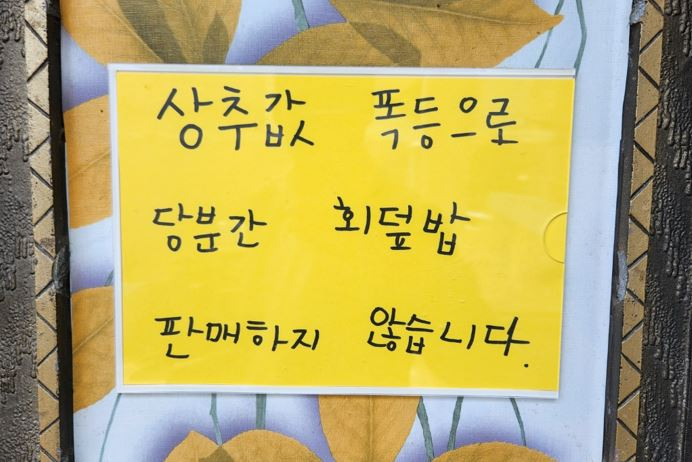 상추값 폭등으로
당분간 회덮밥
판매하지 않습니다.